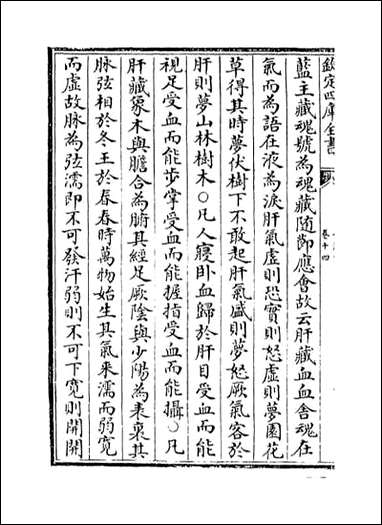 欽定四庫全書
卷十四
藍主藏魂號為魂藏隨節應會故云肝藏血血舍魂在
氣而為語在液為淚肝氣虛則恐實則怒虛則夢園花
草得其時夢伏樹下不敢起肝氣盛則夢怒厥氣客於
肝則夢山林樹木○凡人寢卧血歸於肝目受血而能
視足受血而能步掌受血而能握指受血而能攝○凡
肝藏象木與膽合為腑其經足厥陰與少陽為表裏其
脉弦相於冬王於春春時萬物始生其氣來濡而弱寛
而虛故脉為弦濡即不可發汗弱則不可下寛則開開